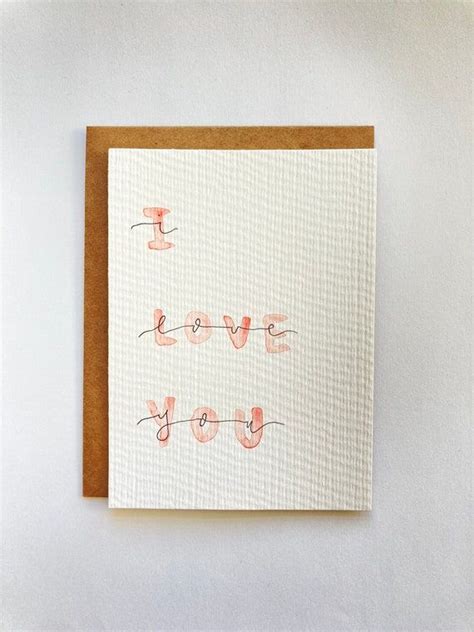 I
i
LOVE
love
YOU
you